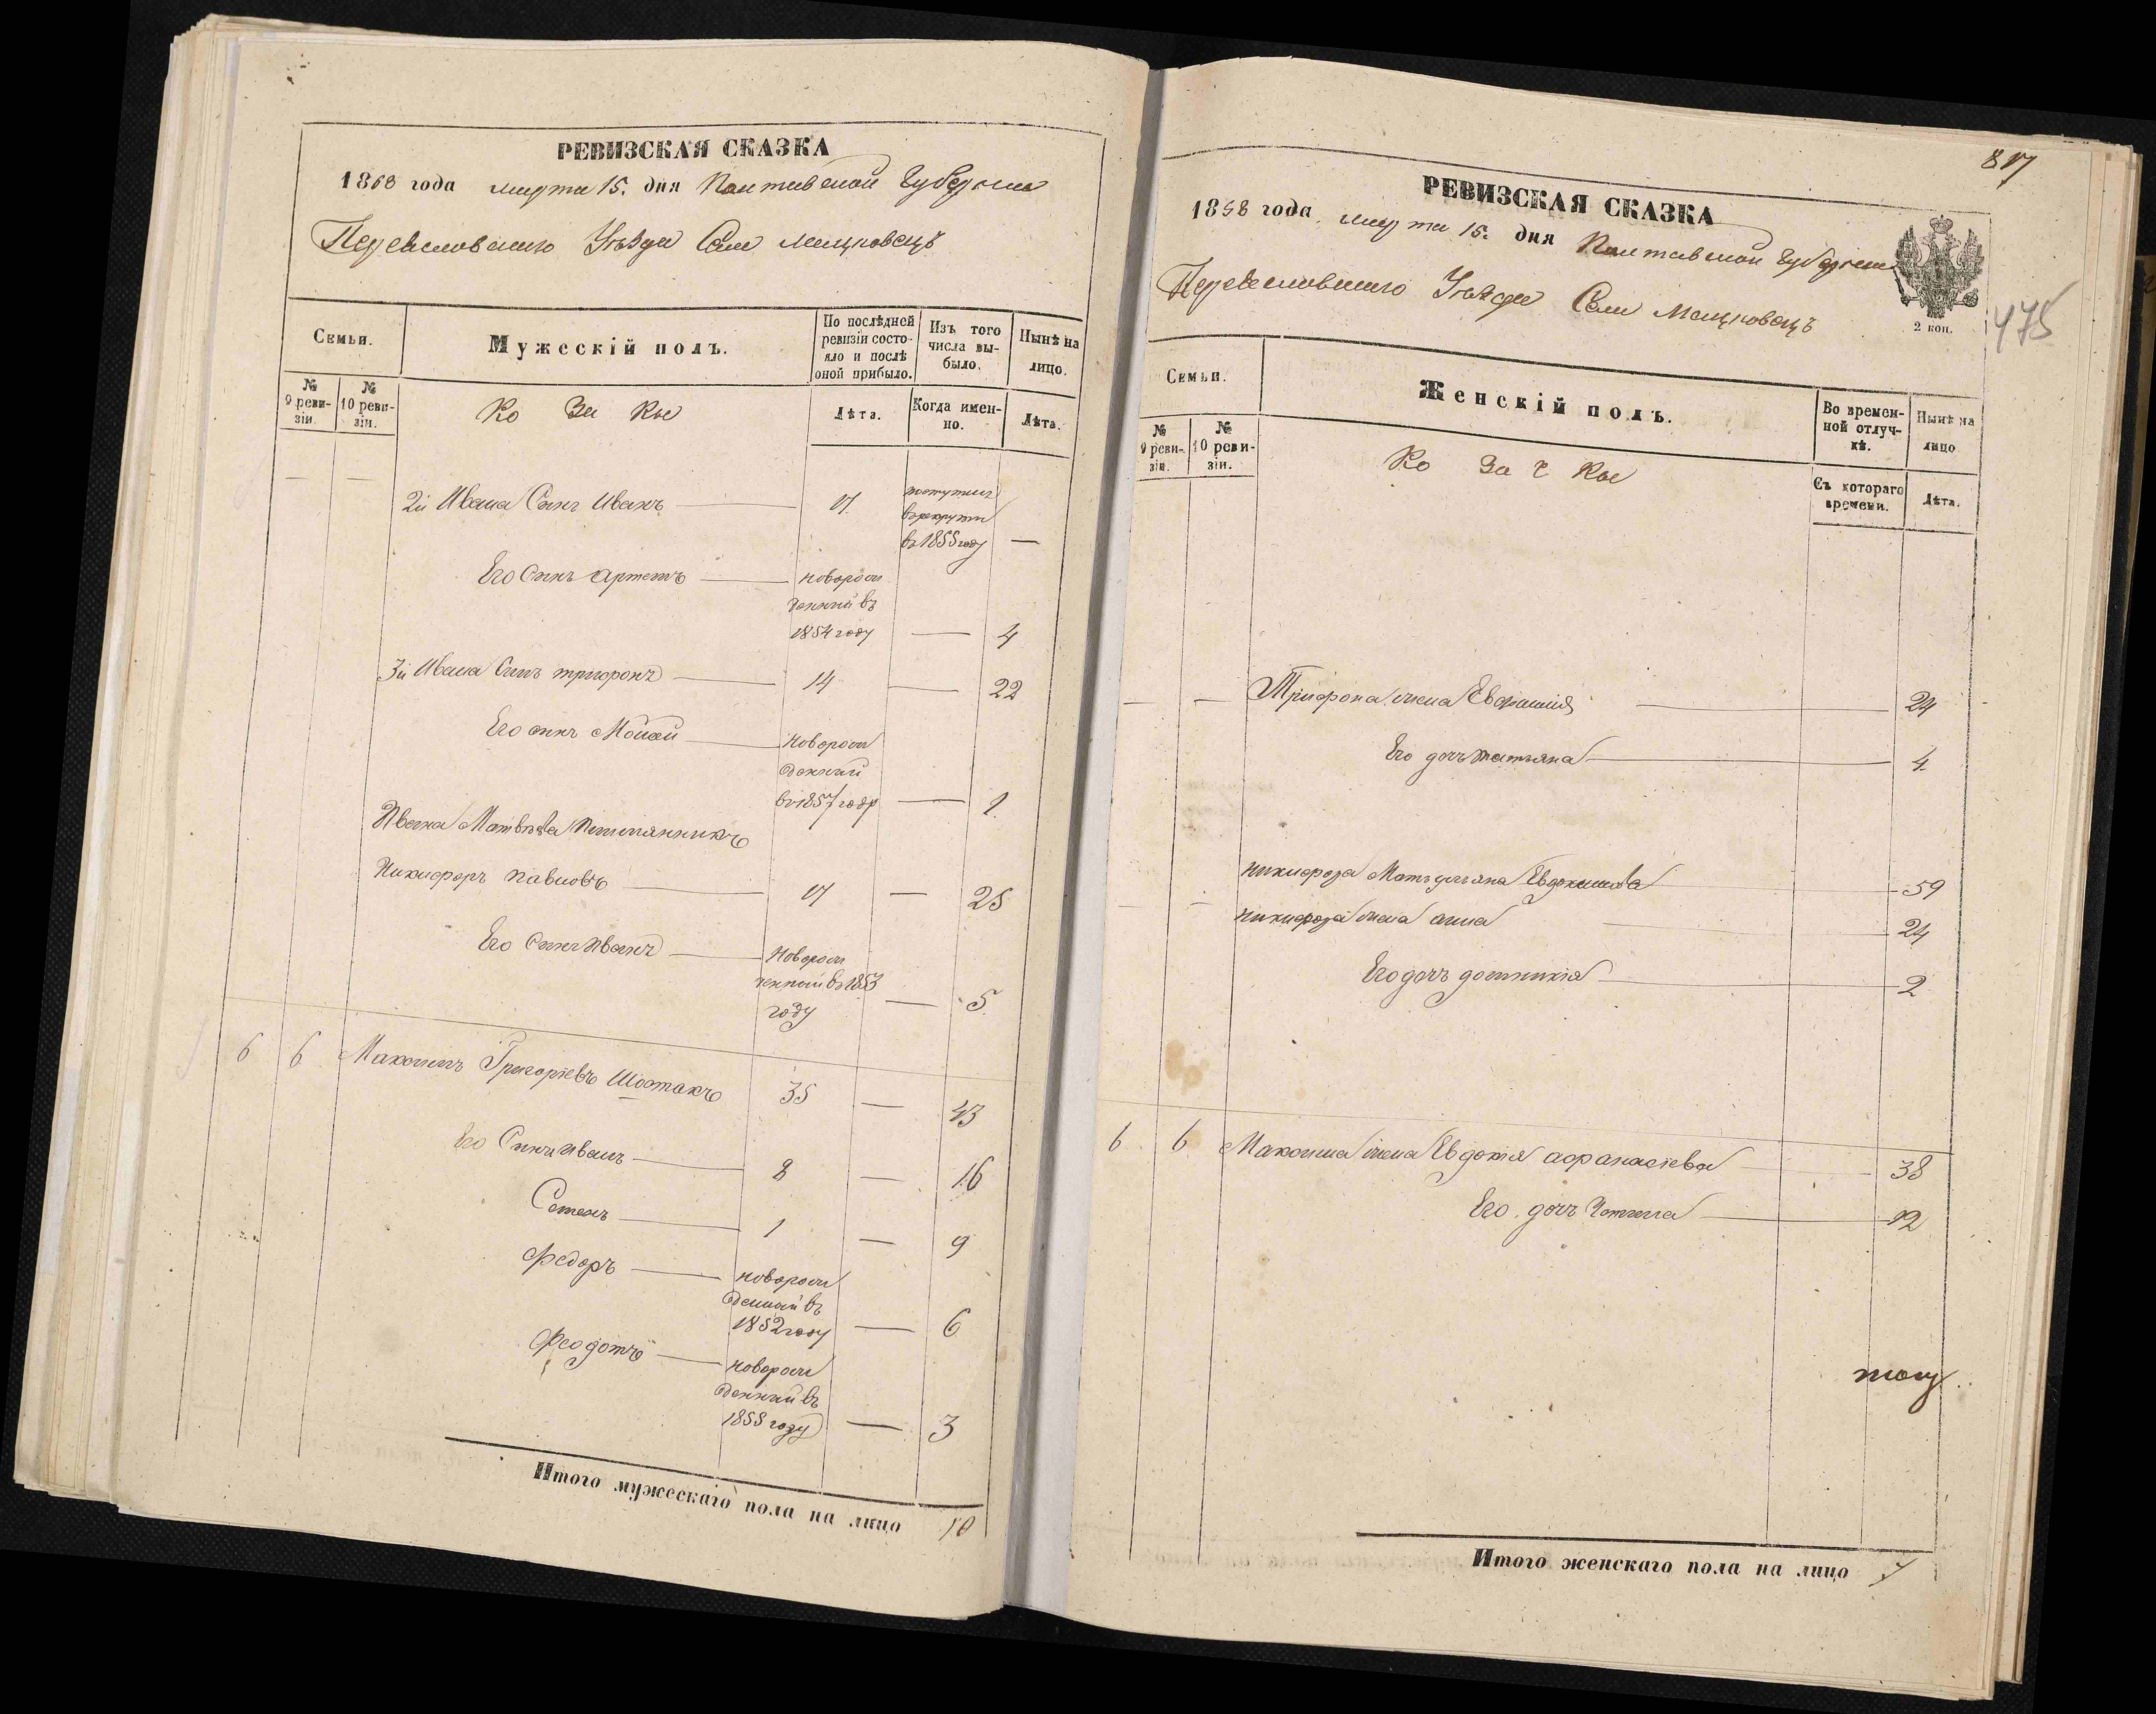 РЕВИЗСКАЯ СКАЗКА
1858 года марта 15. дня Полтавской Губернии
Переяславскаго Уѣзда Села Мацковецъ
Семьи.
Мужескій полъ.
По послѣдней ревизіи состояло и послѣ оной прибыло.
Изъ того числа выбыло.
Нынѣ на лицо.
№ 9 ревизіи.
№ 10 ревизіи.
Ко за ки
Лѣта.
Когда именно.
Лѣта.
— — 2й Ивана Сынъ Иванъ — 17 поступилъ
в рекруты
въ 1855 году —
Его Сынъ Артемъ — новорож
денный въ
1854 году — 4
3й Ивана Сынъ Трифонъ — 14 — 22
Его сынъ Мойсей — новорож
денный
въ 1857 годр — 1.
Ивана Матвѣева Племянникъ
Никифоръ Павловъ — 17 — 25
Его Сынъ Иванъ — новорож
денный въ 1853
году — 5.
6 6 Максимъ Григоріевъ Шостакъ 35 — 43
Его Сынъ Иванъ — 8 — 16
Степанъ — 1 — 9
Федоръ — новорож
денный въ
1852 году — 6
Феодотъ — новорож
денный въ
1855 году — 3
Итого мужескаго пола на лицо 10
817
475
РЕВИЗСКАЯ СКАЗКА
1858 года марта 15. дня Полтавской Губерніи
Переяславскаго Уѣзда Села Мацковецъ
2 коп.
Семьи.
Женскій полъ.
Во временной отлучкѣ.
Нынѣ на лицо
№ 9 ревизіи.
№ 10 ревизіи.
Ко за ч ки
Съ котораго времени.
Лѣта.
— — Трифона жена Евфимія — 24
Его дочь Татьяна — 4.
Никифора Мать Ульяна Евдокимова — 59
— — Никифора жена Анна — 24
Его дочь Домникія — 2
6 6 Максима жена Евдокія Афанасіева — 38
Его дочь — 12
Итого женскаго пола на лицо 7